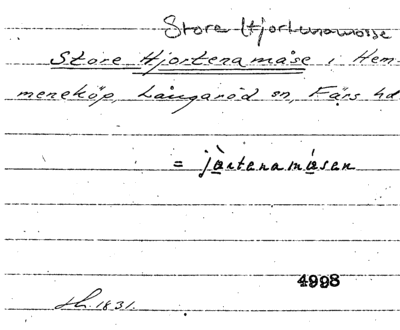 Store Hjortenamosse
Store Hjortenamåse i Hem-
meneköp, Långaröd sn, Färs hd
= jàrtenamásen
4998
Sk. 1831.